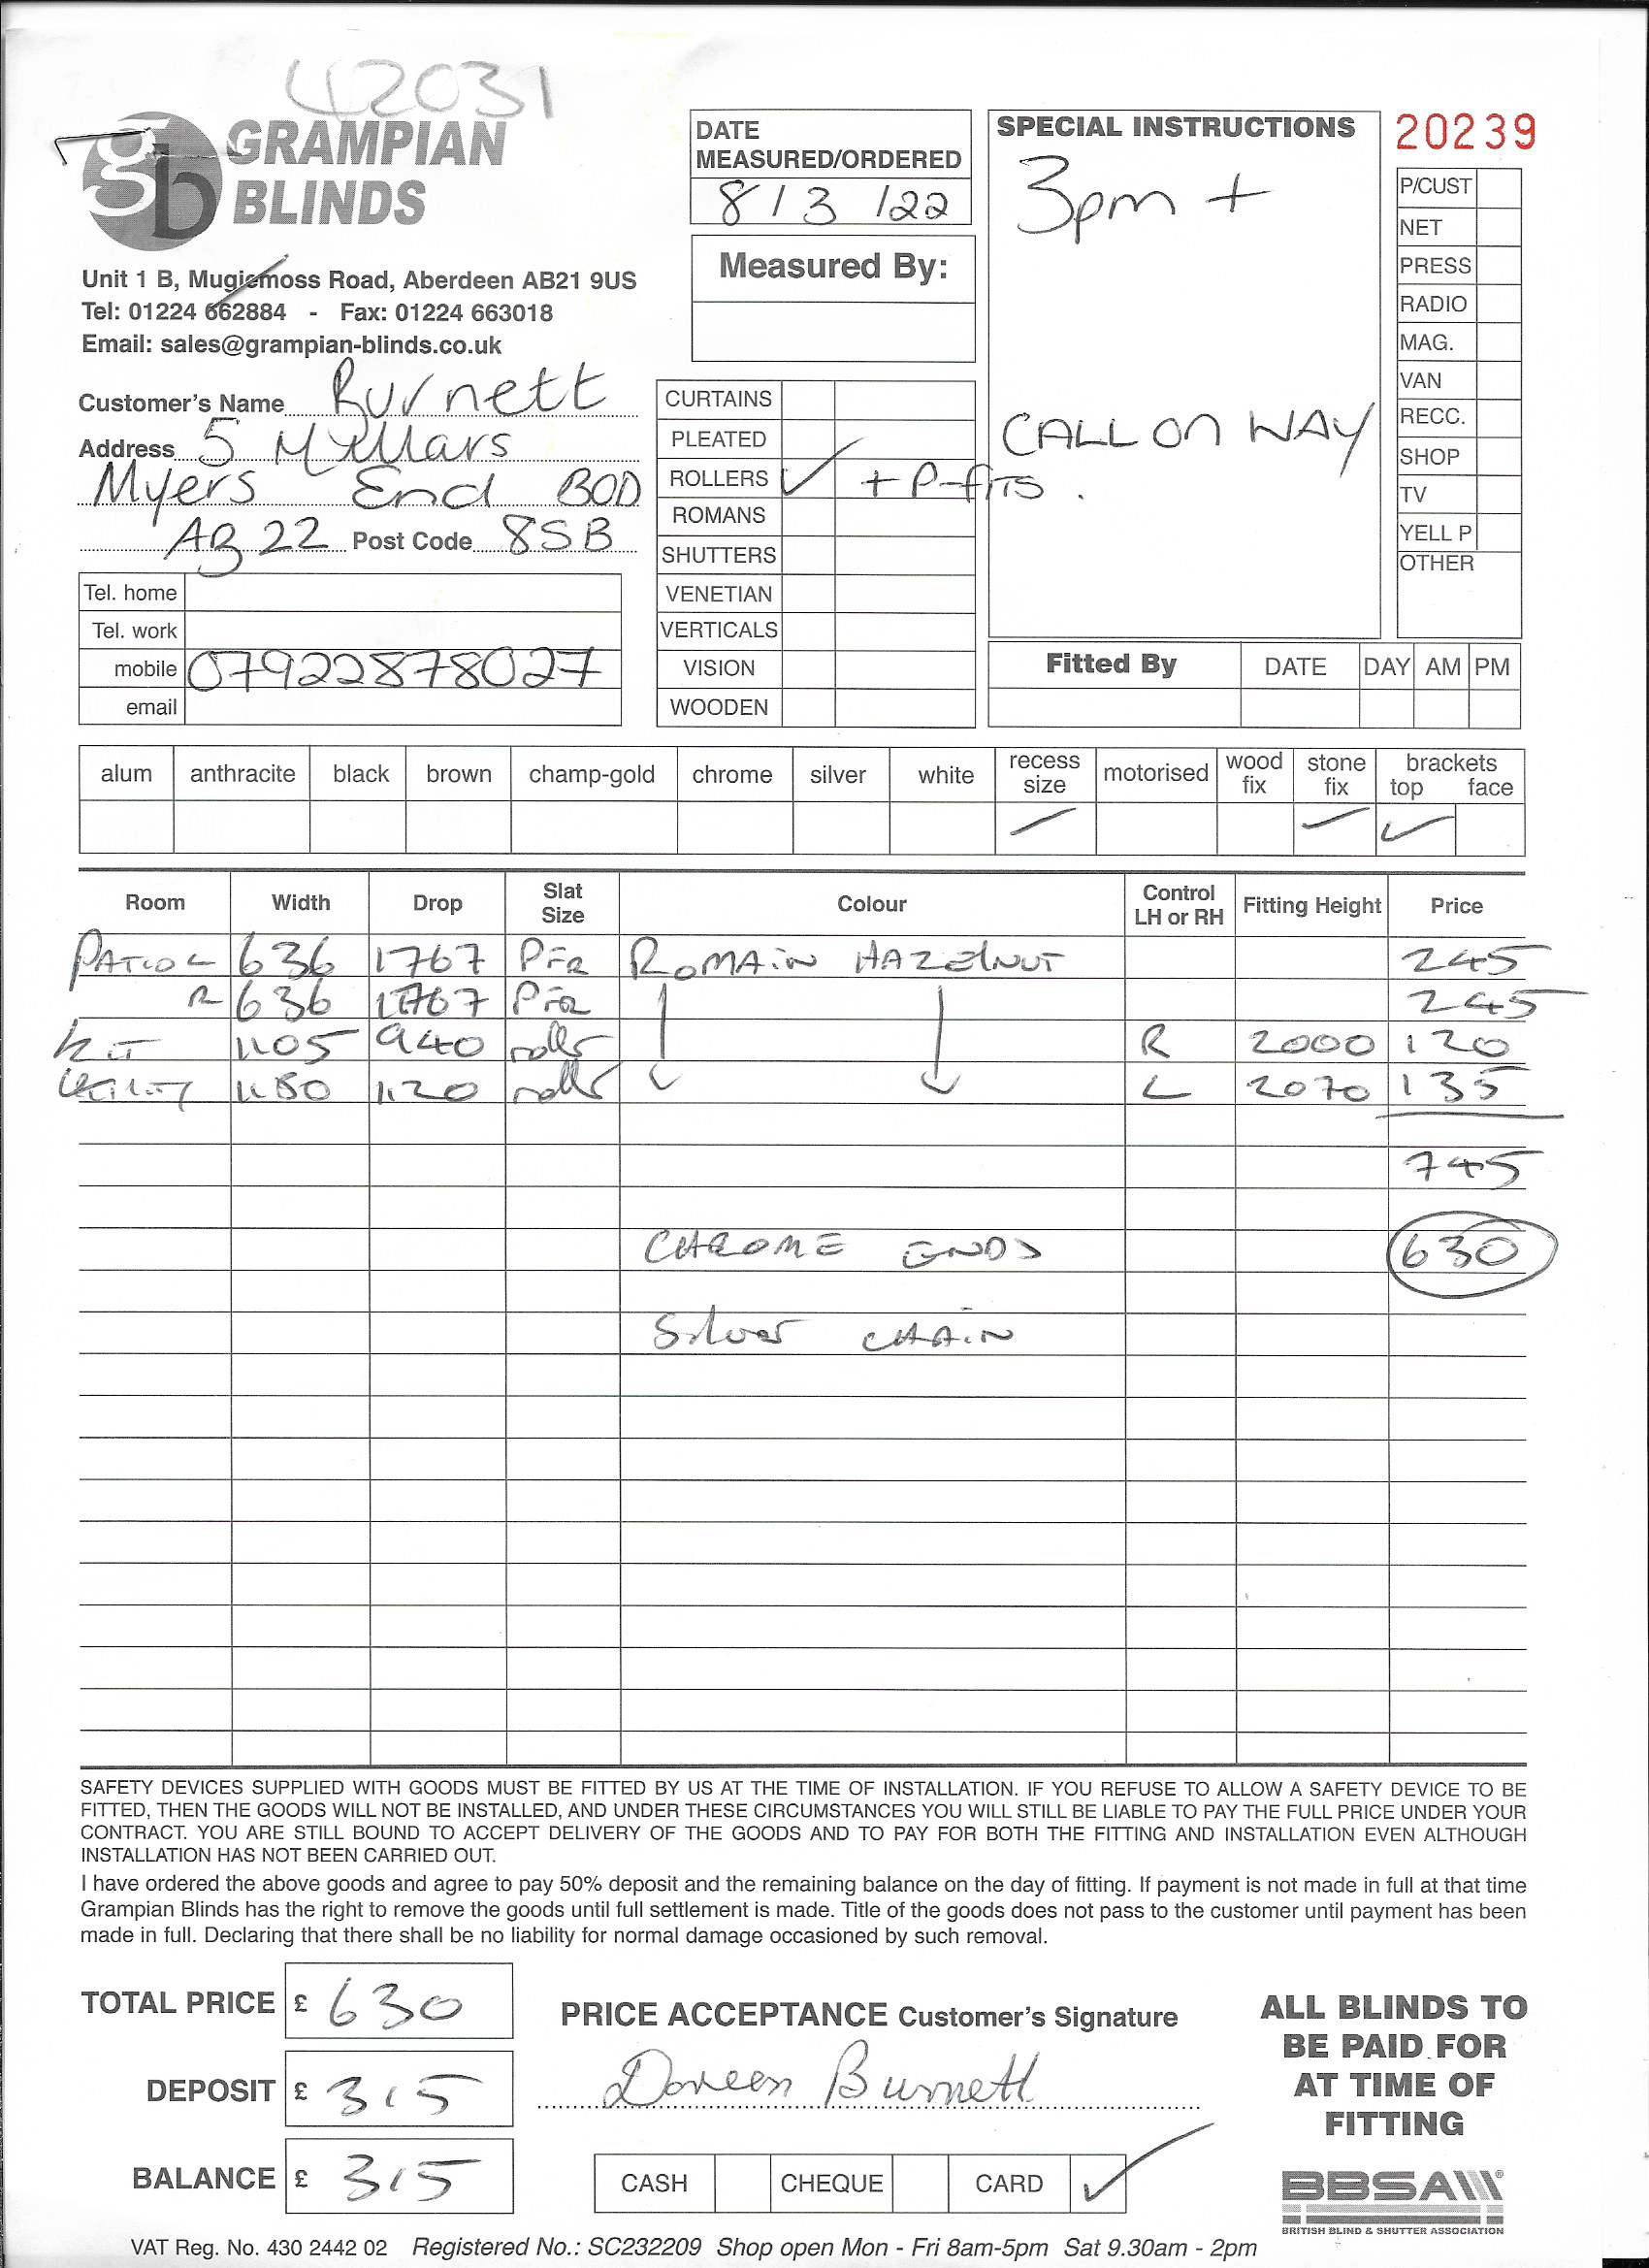 42031
GRAMPIAN
BLINDS
Unit 1 B, Mugiemoss Road, Aberdeen AB21 9US
Tel: 01224 662884 - Fax: 01224 663018
Email: sales@grampian-blinds.co.uk
DATE
MEASURED/ORDERED
8/3/22
Measured By:
SPECIAL INSTRUCTIONS
3pm +
CALL ON WAY
20239
P/CUST
NET
PRESS
RADIO
MAG.
VAN
RECC.
SHOP
TV
YELL P
OTHER
Customer's Name Burnett
Address 5 Mellars
Myers End BOD
AB22 Post Code 8SB
Tel. home
Tel. work
mobile 07922878027
email
CURTAINS
PLEATED
ROLLERS ✓ + P-fits.
ROMANS
SHUTTERS
VENETIAN
VERTICALS
VISION
WOODEN
Fitted By DATE DAY AM PM
alum anthracite black brown champ-gold chrome silver white recess size motorised wood fix stone fix brackets top face
Room Width Drop Slat Size Colour Control LH or RH Fitting Height Price
PATIO L 636 1767 PFR ROMAIN HAZELNUT 245
R 636 1767 PFR 245
KIT 1105 940 roller R 2000 120
Utility 1180 1120 roller L 2070 135
745
CHROME ENDS 630
Silver CHAIN
SAFETY DEVICES SUPPLIED WITH GOODS MUST BE FITTED BY US AT THE TIME OF INSTALLATION. IF YOU REFUSE TO ALLOW A SAFETY DEVICE TO BE
FITTED, THEN THE GOODS WILL NOT BE INSTALLED, AND UNDER THESE CIRCUMSTANCES YOU WILL STILL BE LIABLE TO PAY THE FULL PRICE UNDER YOUR
CONTRACT. YOU ARE STILL BOUND TO ACCEPT DELIVERY OF THE GOODS AND TO PAY FOR BOTH THE FITTING AND INSTALLATION EVEN ALTHOUGH
INSTALLATION HAS NOT BEEN CARRIED OUT.
I have ordered the above goods and agree to pay 50% deposit and the remaining balance on the day of fitting. If payment is not made in full at that time
Grampian Blinds has the right to remove the goods until full settlement is made. Title of the goods does not pass to the customer until payment has been
made in full. Declaring that there shall be no liability for normal damage occasioned by such removal.
TOTAL PRICE £ 630
DEPOSIT £ 315
BALANCE £ 315
PRICE ACCEPTANCE Customer's Signature
Doreen Burnett
CASH CHEQUE CARD ✓
ALL BLINDS TO
BE PAID FOR
AT TIME OF
FITTING
BBSA
BRITISH BLIND & SHUTTER ASSOCIATION
VAT Reg. No. 430 2442 02 Registered No.: SC232209 Shop open Mon - Fri 8am-5pm Sat 9.30am - 2pm